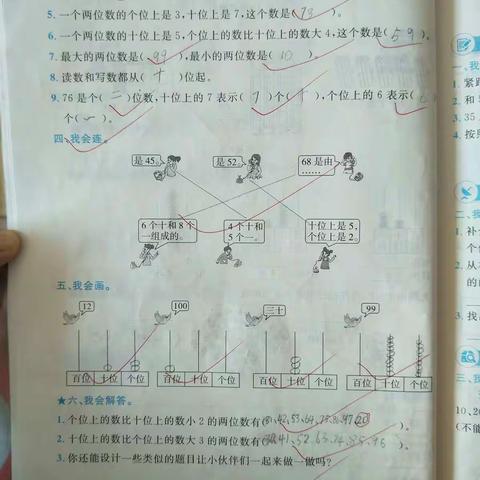 5. 一个两位数的个位上是3,十位上是7,这个数是(73)。
6. 一个两位数的十位上是5,个位上的数比十位上的数大4,这个数是(59)。
7. 最大的两位数是(99),最小的两位数是(10)。
8. 读数和写数都从(十)位起。
9. 76是个(二)位数,十位上的7表示(7)个(十),个位上的6表示(6)
个(一)。
四、我会连。
是45。 是52。 68是由……
6个十和8个一组成的。 4个十和5个一。 十位上是5,个位上是2。
五、我会画。
12 100 三十 99
百位 十位 个位 百位 十位 个位 百位 十位 个位 百位 十位 个位
★六、我会解答。
1. 个位上的数比十位上的数小2的两位数有( 42、53、64、 20 )。
2. 十位上的数比个位上的数大3的两位数有( 41、52、63、 )。
3. 你还能设计一些类似的题目让小伙伴们一起来做一做吗?
一、我
1. 紧
2. 和
3. 35
4. 按
二、我
1. 补
个
2. 从
的
3. 找
三、我
10、20
(不能